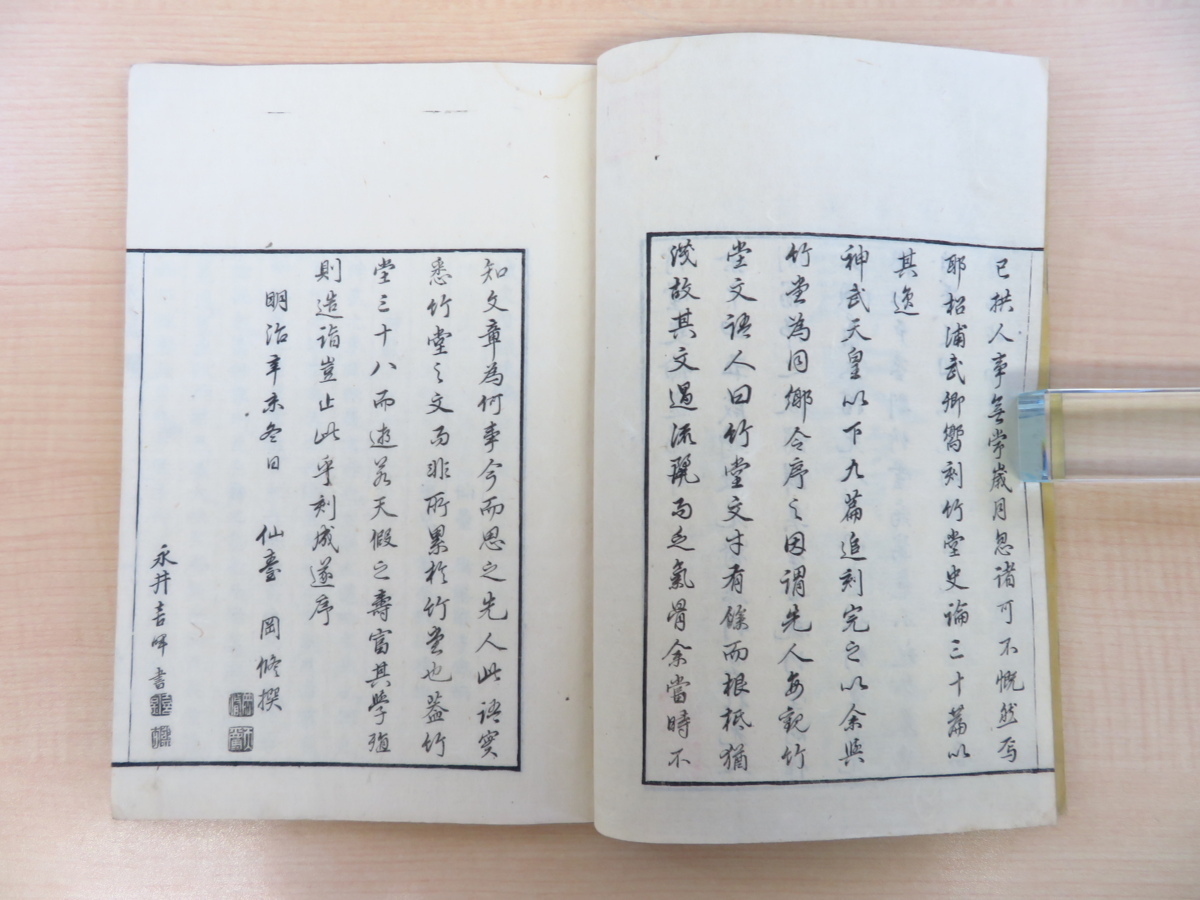 已拱人事無常歲月忽諸可不慨然焉
耶松浦武卿嚮刻竹堂史論三十篇以
其逸
神武天皇以下九篇追刻完之以余與
竹堂為同鄉令序之因謂先人每觀竹
堂文語人曰竹堂文才有餘而根柢猶
淺故其文過流麗而乏氣骨余當時不
知文章為何事今而思之先人此語實
悉竹堂之文而非所累於竹堂也蓋竹
堂三十八而逝若天假之壽富其學殖
則造詣豈止此乎刻成遂序
明治辛未冬日 仙臺 岡脩撰
永井喜暉書